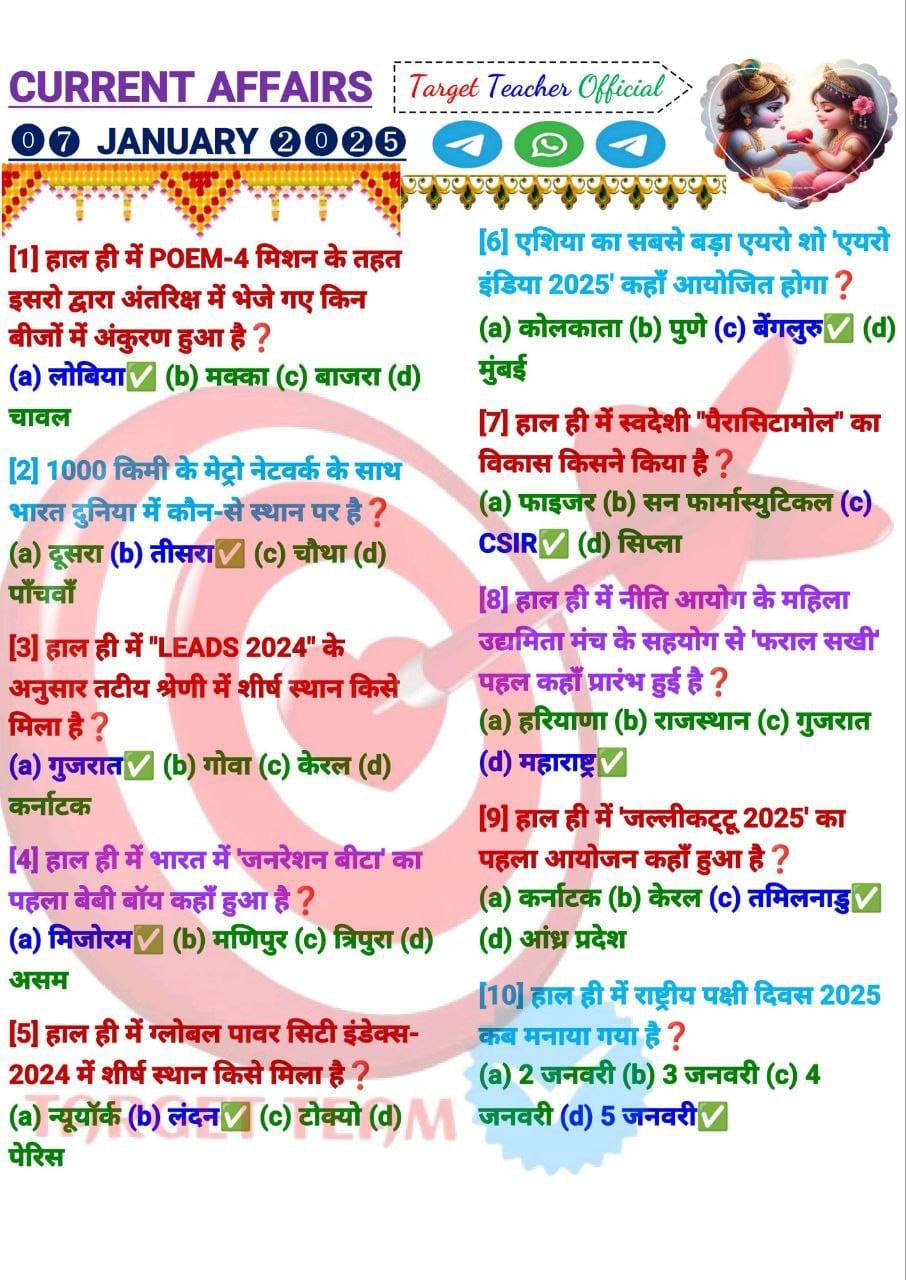 CURRENT AFFAIRS
Target Teacher Official
07 JANUARY 2025
[1] हाल ही में POEM-4 मिशन के तहत
इसरो द्वारा अंतरिक्ष में भेजे गए किन
बीजों में अंकुरण हुआ है❓
(a) लोबिया✅ (b) मक्का (c) बाजरा (d)
चावल
[2] 1000 किमी के मेट्रो नेटवर्क के साथ
भारत दुनिया में कौन-से स्थान पर है❓
(a) दूसरा (b) तीसरा✅ (c) चौथा (d)
पाँचवाँ
[3] हाल ही में "LEADS 2024" के
अनुसार तटीय श्रेणी में शीर्ष स्थान किसे
मिला है❓
(a) गुजरात✅ (b) गोवा (c) केरल (d)
कर्नाटक
[4] हाल ही में भारत में 'जनरेशन बीटा' का
पहला बेबी बॉय कहाँ हुआ है❓
(a) मिजोरम✅ (b) मणिपुर (c) त्रिपुरा (d)
असम
[5] हाल ही में ग्लोबल पावर सिटी इंडेक्स-
2024 में शीर्ष स्थान किसे मिला है❓
(a) न्यूयॉर्क (b) लंदन✅ (c) टोक्यो (d)
पेरिस
[6] एशिया का सबसे बड़ा एयरो शो 'एयरो
इंडिया 2025' कहाँ आयोजित होगा❓
(a) कोलकाता (b) पुणे (c) बेंगलुरु✅ (d)
मुंबई
[7] हाल ही में स्वदेशी "पैरासिटामोल" का
विकास किसने किया है❓
(a) फाइजर (b) सन फार्मास्युटिकल (c)
CSIR✅ (d) सिप्ला
[8] हाल ही में नीति आयोग के महिला
उद्यमिता मंच के सहयोग से 'फराल सखी'
पहल कहाँ प्रारंभ हुई है❓
(a) हरियाणा (b) राजस्थान (c) गुजरात
(d) महाराष्ट्र✅
[9] हाल ही में 'जल्लीकट्टू 2025' का
पहला आयोजन कहाँ हुआ है❓
(a) कर्नाटक (b) केरल (c) तमिलनाडु✅
(d) आंध्र प्रदेश
[10] हाल ही में राष्ट्रीय पक्षी दिवस 2025
कब मनाया गया है❓
(a) 2 जनवरी (b) 3 जनवरी (c) 4
जनवरी (d) 5 जनवरी✅
TARGET TEAM